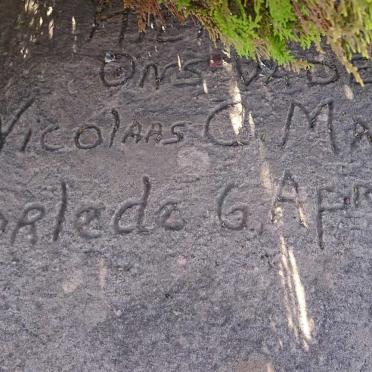 Ons Vade
Nicolaas C Ma
orlede 6 Apr